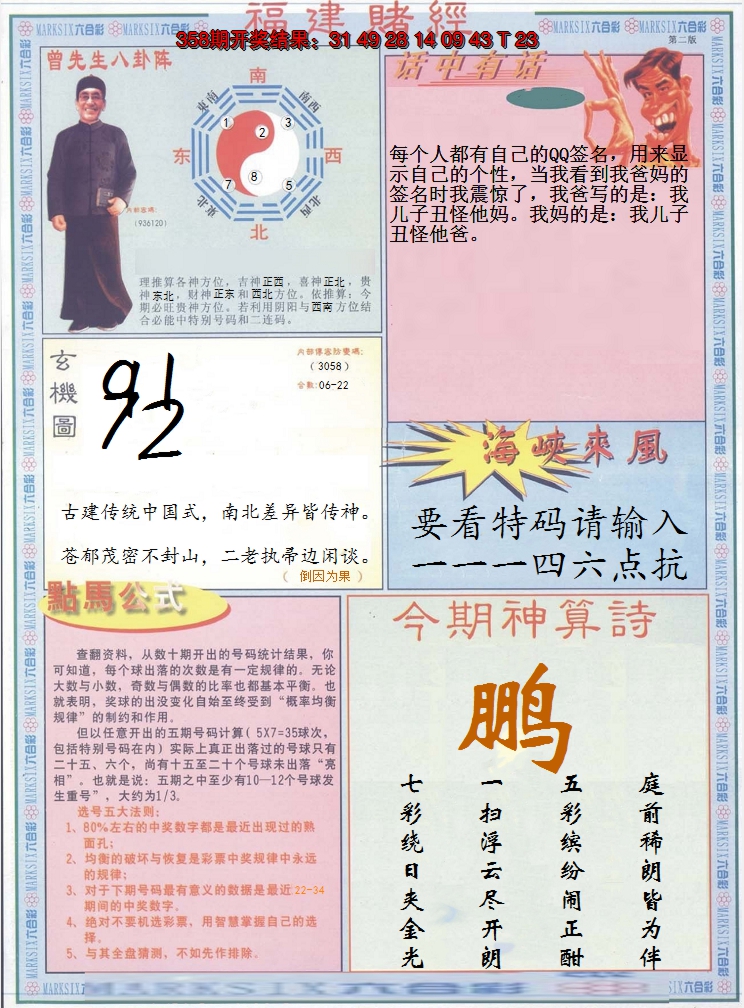 福建賭經
358期开奖结果：31 49 28 14 09 43 T 23
MARKSIX六合彩
第二版
曾先生八卦阵
南
東南
南西
1
2
3
东
西
7
8
5
東北
北西
北
内部密碼:
(936120)
理推算各神方位，吉神正西，喜神正北，贵
神东北，财神正东和西北方位。依推算：今
期必旺贵神方位。若利用阴阳与西南方位结
合必能中特别号码和二连码。
话中有话
每个人都有自己的QQ签名，用来显
示自己的个性，当我看到我爸妈的
签名时我震惊了，我爸写的是：我
儿子丑怪他妈。我妈的是：我儿子
丑怪他爸。
玄機圖
(3058)
合数:06-22
古建传统中国式，南北差异皆传神。
苍郁茂密不封山，二老执帚边闲谈。
（ 倒因为果 ）
海峽來風
要看特码请输入
一一一四六点抗
點馬公式
查翻资料，从数十期开出的号码统计结果，你
可知道，每个球出落的次数是有一定规律的。无论
大数与小数，奇数与偶数的比率也都基本平衡。也
就表明，奖球的出没变化自始至终受到“概率均衡
规律”的制约和作用。
但以任意开出的五期号码计算( 5X7=35球次，
包括特别号码在内）实际上真正出落过的号球只有
二十五、六个，尚有十五至二十个号球未出落“亮
相”。也就是说：五期之中至少有10—12个号球发
生重号”，大约为1/3。
选号五大法则：
1、80%左右的中奖数字都是最近出现过的熟
面孔；
2、均衡的破坏与恢复是彩票中奖规律中永远
的规律；
3、对于下期号码最有意义的数据是最近22-34
期间的中奖数字。
4、绝对不要机选彩票，用智慧掌握自己的选
择。
5、与其全盘猜测，不如先作排除。
今期神算詩
鹏
庭前稀朗皆为伴
五彩缤纷闹正酣
一扫浮云尽开朗
七彩绕日夹金光